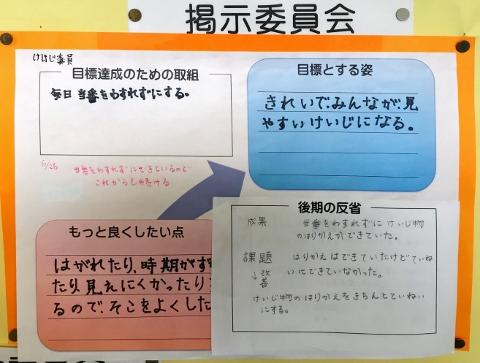 掲示委員会
けいじ委員
目標達成のための取組
毎日 当番をわすれずにする。
目標とする姿
きれいで、みんなが、見
やすいけいじになる。
9/26 当番をわすれずにできているので
これからも続ける
もっと良くしたい点
はがれたり、時期がす
たり、見えにくかったり
るので、そこをよくした
後期の反省
成果 当番をわすれずにけいじ物
のはりかえができていた。
課題 はりかえはできていたけどていね
↓改善 いにできていなかった。
けいじ物のはりかえをきちんとていねい
にする。